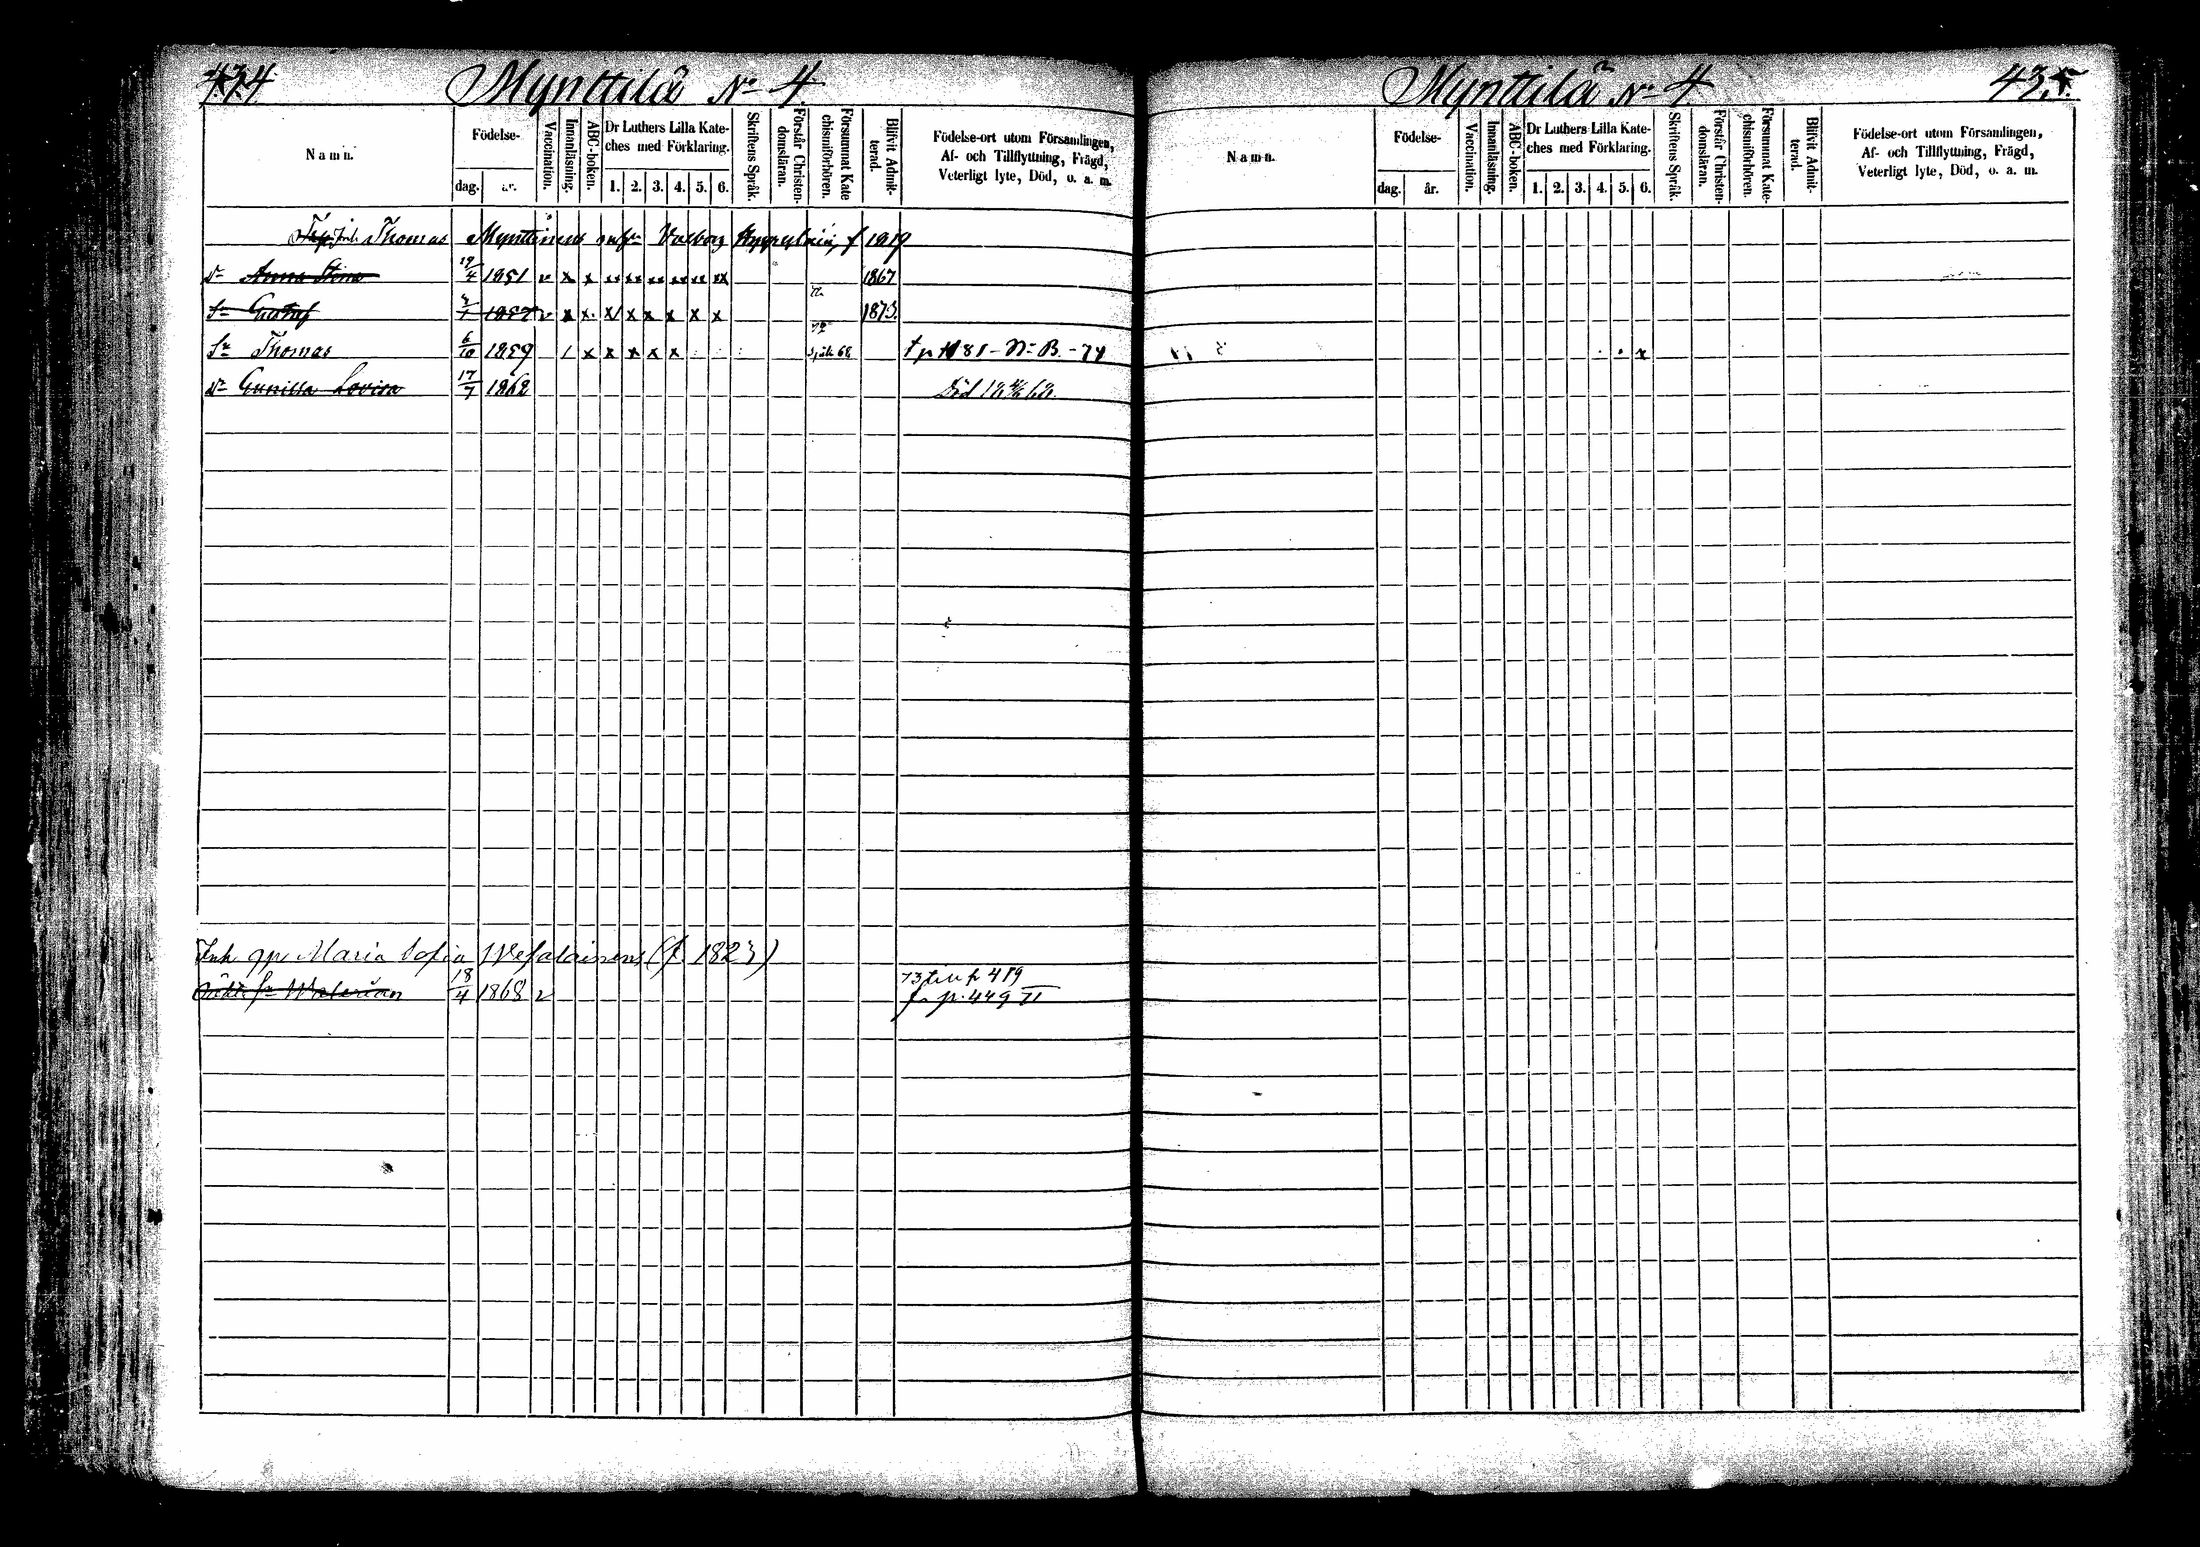 434 Mynttilä No 4.
Namn.
Födelse-
dag. år.
Vaccination.
Innanläsning.
ABC-boken.
Dr Luthers Lilla Kate-
ches med Förklaring.
1. 2. 3. 4. 5. 6.
Skriftens Språk.
Förstår Christen-
domsläran.
Försummat Kate
chismiförhören.
Blifvit Admit-
terad.
Födelse-ort utom Församlingen,
Af- och Tillflyttning, Frägd,
Veterligt lyte, Död, o. a. m.
Thomas Mynttinens Valborg f 1819
Dr Anna Stina 19/4 1851 v x x 1867
Sn Gustaf 1857 v x x x x x x x 1873.
Sn Thomas 6/10 1859 / x x x x x 68
Dr Gunilla Lovisa 17/7 1862 Död
Inh Maria Sofia (f. 1823)
18/4 1868 v 73 p 419
fr p. 449 II
Mynttilä No 4 435.
Namn.
Födelse-
dag. år.
Vaccination.
Innanläsning.
ABC-boken.
Dr Luthers Lilla Kate-
ches med Förklaring.
1. 2. 3. 4. 5. 6.
Skriftens Språk.
Förstår Christen-
domsläran.
Försummat Kate-
chismiförhören.
Blifvit Admit-
terad.
Födelse-ort utom Församlingen,
Af- och Tillflyttning, Frägd,
Veterligt lyte, Död, o. a. m.